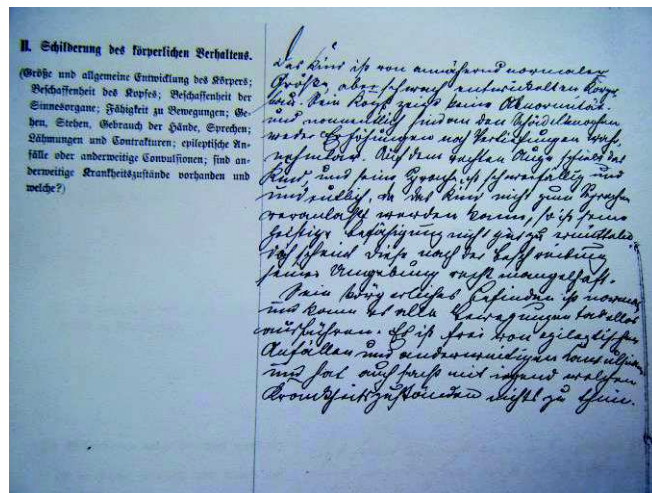 II. Schilderung des körperlichen Verhaltens.
(Größe und allgemeine Entwicklung des Körpers;
Beschaffenheit des Kopfes; Beschaffenheit der
Sinnesorgane; Fähigkeit zu Bewegungen; Ge-
hen, Stehen, Gebrauch der Hände, Sprechen;
Lähmungen und Contrakturen; epileptische An-
fälle oder anderweitige Convulsionen; sind an-
derweitige Krankheitszustände vorhanden und
welche?)
Das Kind ist von annähernd normaler
Größe, aber schwach entwickelten Körper
bau. Sein Kopf zeigt keine Abnormität
und namentlich sind an den Schädelknochen
weder Erhöhungen noch Vertiefungen wahr-
nehmbar. Auf dem rechten Auge schielt das
Kind, und seine Sprache ist schwerfällig und
undeutlich, da das Kind nicht zum Sprechen
veranlaßt werden kann, so ist seine
geistige Befähigung nicht gut zu ermitteln
doch scheint diese nach der Beschreibung
seiner Umgebung recht mangelhaft.
Sein körperliches Befinden ist normal
und kann es alle Bewegungen tadellos
ausführen. Es ist frei von epileptischen
Anfällen und anderweitigen Convulsionen
und hat auch sonst mit irgend welchen
Krankheitszuständen nichts zu thun.